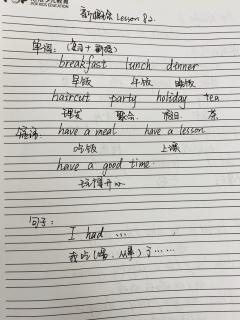 FOR KIDS EDUCATION
新概念 Lesson 82.
单词: (复习+新授)
breakfast lunch dinner
早饭 午饭 晚饭
haircut party holiday tea
理发 聚会 假日 茶
短语: have a meal have a lesson
吃饭 上课
have a good time.
玩得开心.
句子:
I had ....
我吃(喝、从事)了……